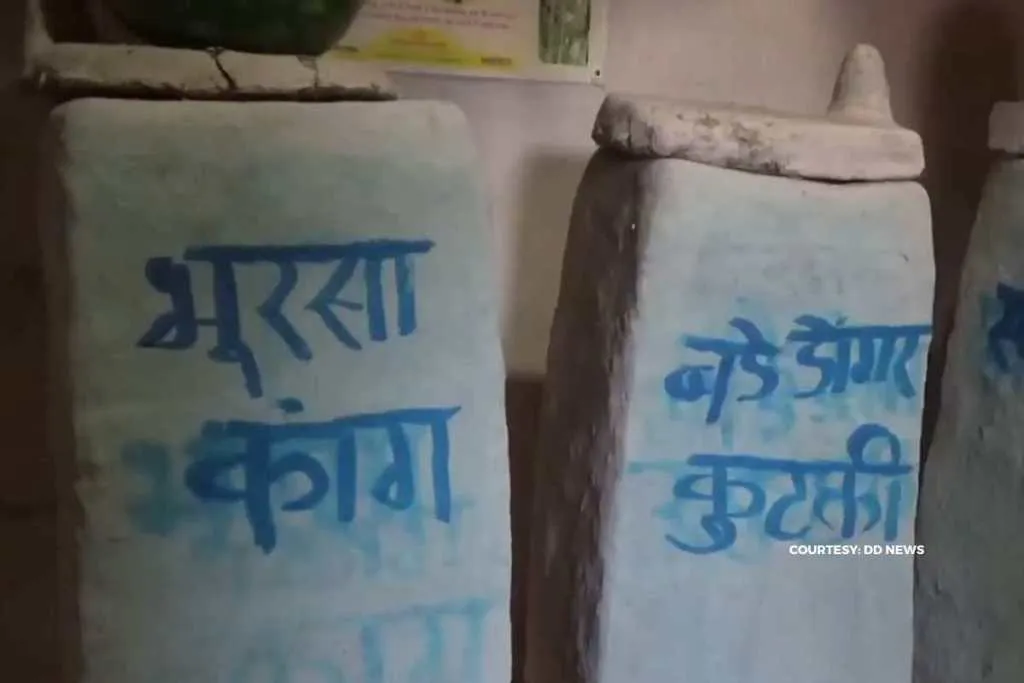 भुरसा
कांग
बडे डोंगर
कुटकी
COURTESY: DD NEWS